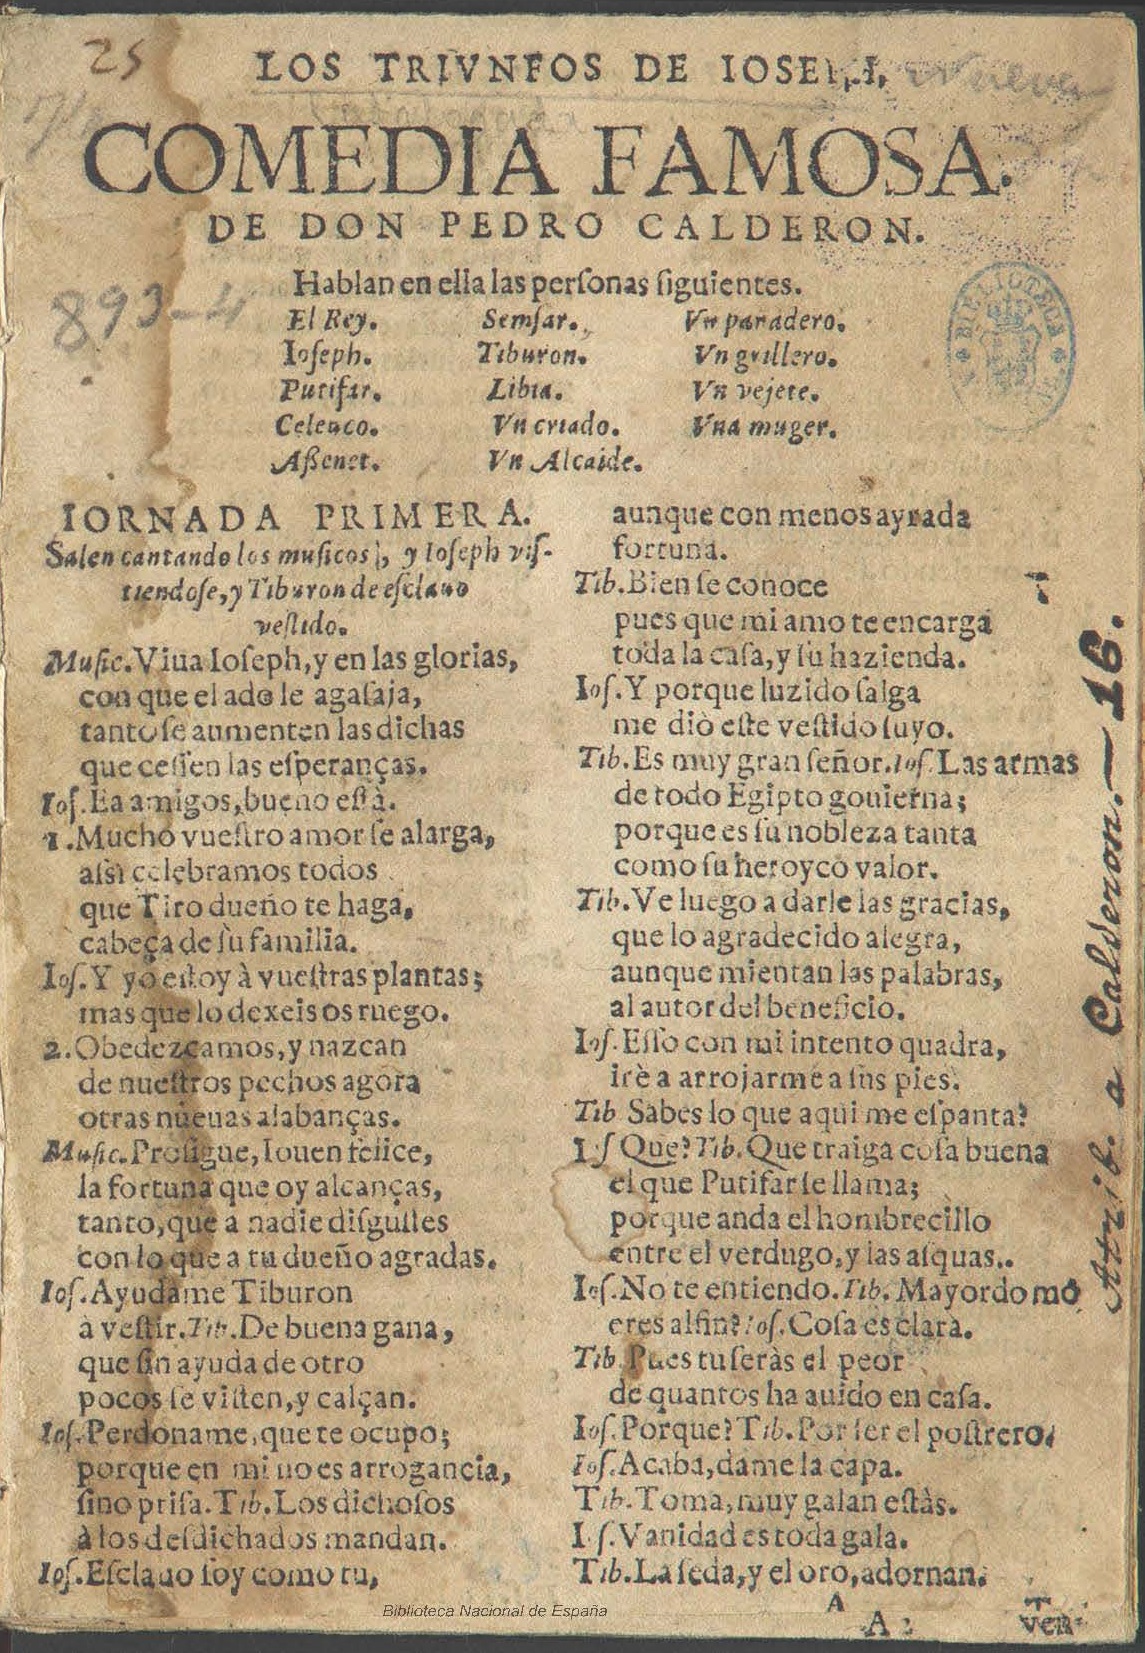 25
LOS TRIVNFOS DE IOSEPH,
Nueva
COMEDIA FAMOSA.
DE DON PEDRO CALDERON.
893-4
Hablan en ella las perſonas ſiguientes.
El Rey. Semſar. Vn panadero.
Ioſeph. Tiburon. Vn grillero.
Putifar. Libia. Vn vejete.
Celenco. Vn criado. Vna muger.
Aſſenet. Vn Alcaide.
BIBLIOTECA
IORNADA PRIMERA.
Salen cantando los muſicos, y Ioſeph viſ-
tiendoſe, y Tiburon de eſclauo
veſtido.
Muſic. Viua Ioſeph, y en las glorias,
con que el ado le agaſaja,
tanto ſe aumenten las dichas
que ceſſen las eſperanças.
Ioſ. Ea amigos, bueno eſtà.
1. Mucho vueſtro amor ſe alarga,
aſsi celebramos todos
que Tiro dueño te haga,
cabeça de ſu familia.
Ioſ. Y yo eſtoy à vueſtras plantas;
mas que lo dexeis os ruego.
2. Obedezcamos, y nazcan
de nueſtros pechos agora
otras nueuas alabanças.
Muſic. Proſigue, Iouen felice,
la fortuna que oy alcanças,
tanto, que a nadie diſguſtes
con lo que a tu dueño agradas.
Ioſ. Ayudame Tiburon
à veſtir. Tib. De buena gana,
que ſin ayuda de otro
pocos ſe viſten, y calçan.
Ioſ. Perdoname, que te ocupo;
porque en mi no es arrogancia,
ſino priſa. Tib. Los dichoſos
à los deſdichados mandan.
Ioſ. Eſclauo ſoy como tu,
aunque con menos ayrada
fortuna.
Tib. Bien ſe conoce
pues que mi amo te encarga
toda la caſa, y ſu hazienda.
Ioſ. Y porque luzido ſalga
me diò eſte veſtido ſuyo.
Tib. Es muy gran ſeñor. Ioſ. Las armas
de todo Egipto gouierna;
porque es ſu nobleza tanta
como ſu heroyco valor.
Tib. Ve luego a darle las gracias,
que lo agradecido alegra,
aunque mientan las palabras,
al autor del beneficio.
Ioſ. Eſſo con mi intento quadra,
irè a arrojarme a ſus pies.
Tib Sabes lo que aqui me eſpanta?
Ioſ Que? Tib. Que traiga coſa buena
el que Putifar ſe llama;
porque anda el hombrecillo
entre el verdugo, y las aſquas.
Ioſ. No te entiendo. Tib. Mayordomo
eres alfin? Ioſ. Coſa es clara.
Tib. Pues tu ſeràs el peor
de quantos ha auido en caſa.
Ioſ. Porque? Tib. Por ſer el poſtrero.
Ioſ. Acaba, dame la capa.
Tib. Toma, muy galan eſtàs.
Ioſ. Vanidad es toda gala.
Tib. La ſeda, y el oro, adornan.
A
ven-
Atrib. a Calderon.—16.
Biblioteca Nacional de España